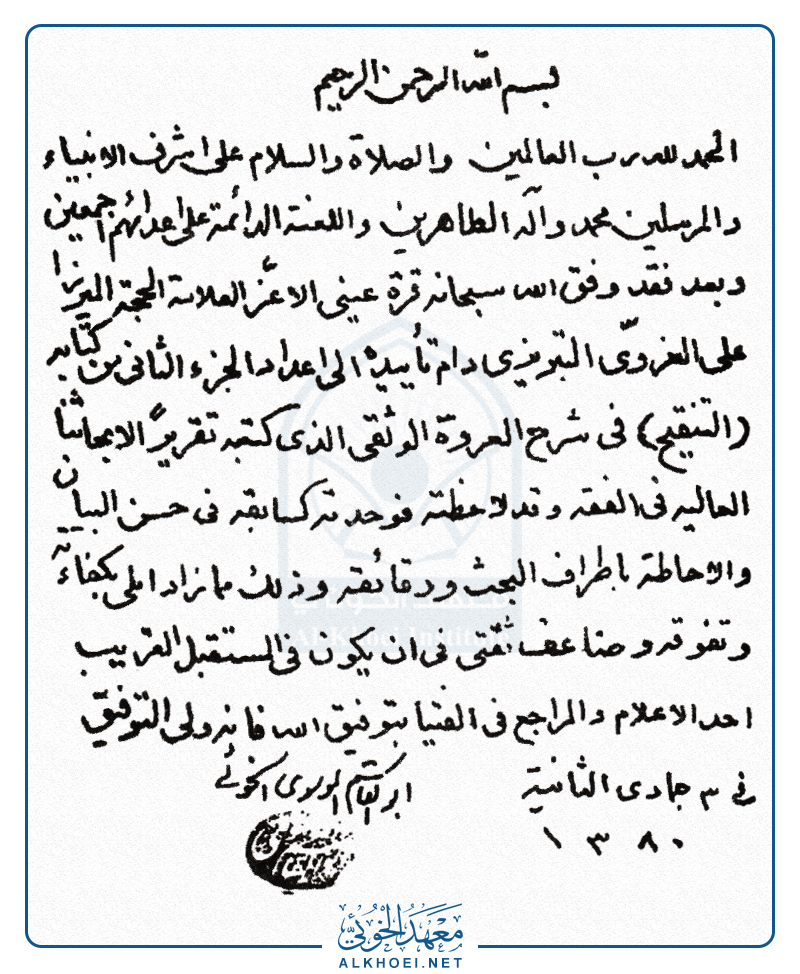 بسم الله الرحمن الرحيم
الحمد لله رب العالمين والصلاة والسلام على اشرف الانبياء
والمرسلين محمد وآله الطاهرين واللعنة الدائمة على اعدائهم اجمعين
وبعد فقد وفق الله سبحانه قرة عيني الاعزّ العلامة الحجة الميرزا
علي الغروىّ التبريزي دام تأييده الى اعداد الجزء الثاني من كتابه
(التنقيح) في شرح العروة الوثقى الذى كتبه تقريرًا لابحاثنا
العاليه في الفقه وقد لاحظته فوجدته كسابقه في حسن البيان
والاحاطة باطراف البحث ودقائقه وذلك مما زاد املى بكفاءته
وتفوقه وضاعف ثقتى في ان يكون في المستقبل القريب
احد الاعلام والمراجع في الفتيا بتوفيق الله فانه ولي التوفيق
في ٣ جمادى الثانية ابو القاسم الموسوى الخوئي
١٣٨٠
معهد الخوئي
ALKHOEI.NET
معهد الخوئي
Al-Khoei Institute